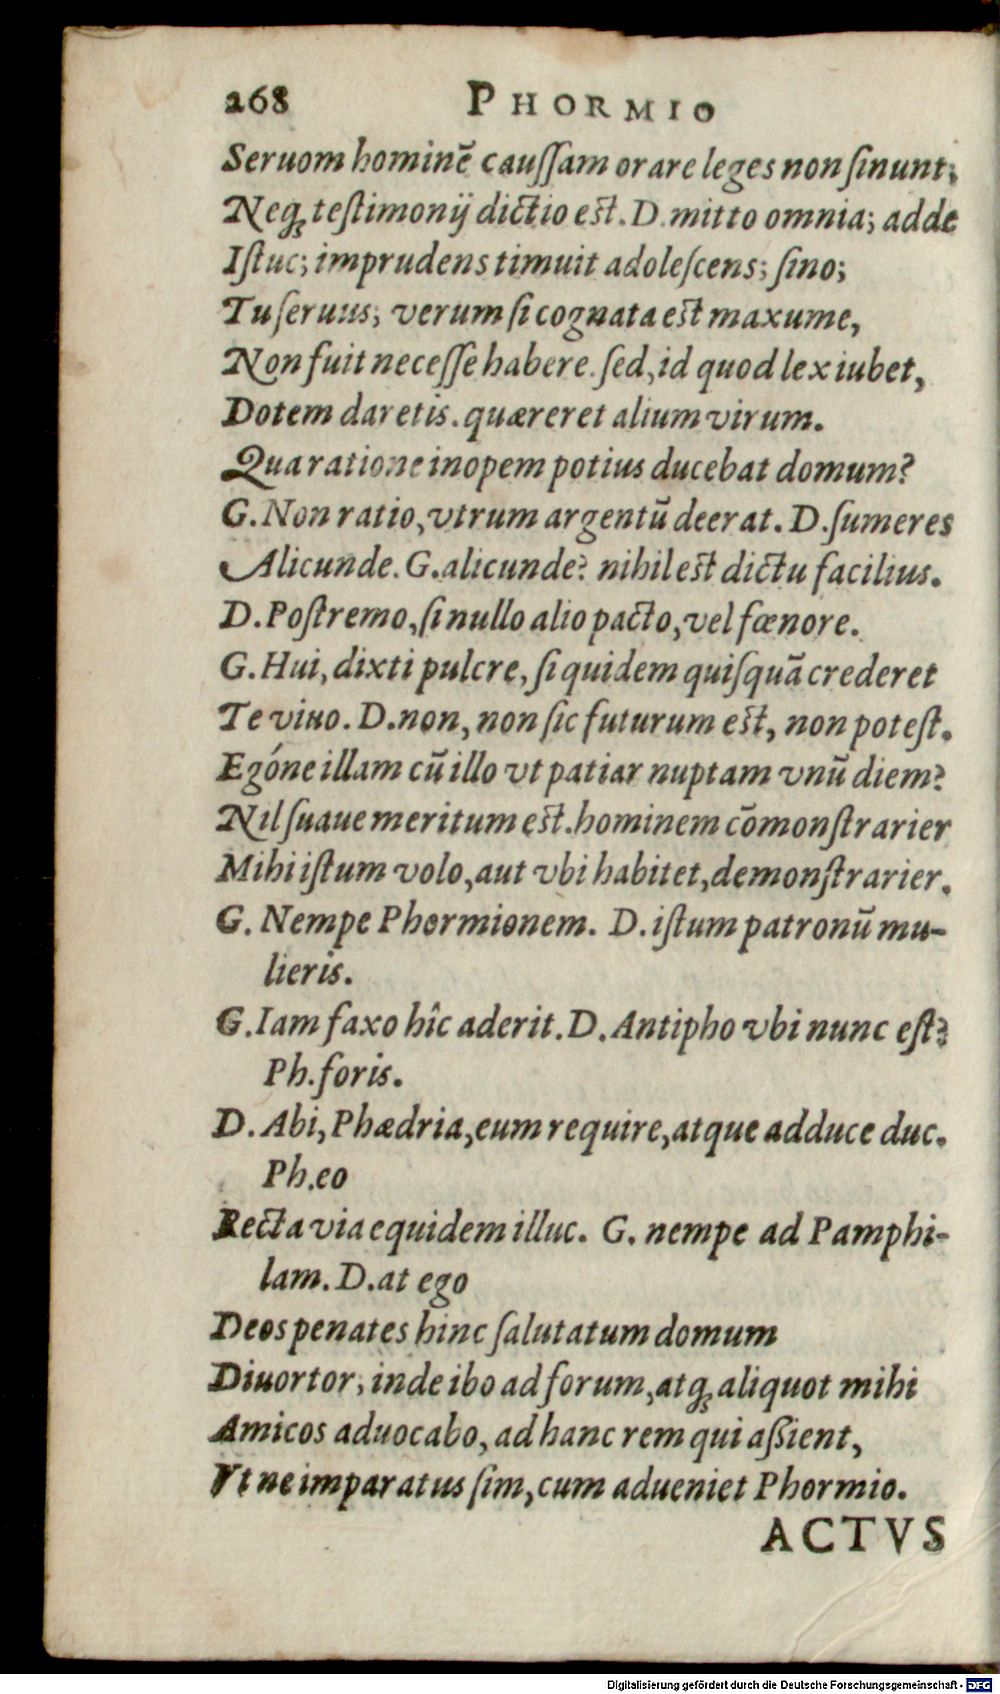 268 PHORMIO
Seruom hominē caussam orare leges non sinunt;
Neq; testimonij dictio est. D. mitto omnia; adde
Istuc; imprudens timuit adolescens; sino;
Tu seruus; verum si cognata est maxume,
Non fuit necesse habere. sed, id quod lex iubet,
Dotem daretis. quæreret alium virum.
Qua ratione inopem potius ducebat domum?
G. Non ratio, vtrum argentū deerat. D. sumeres
Alicunde. G. alicunde? nihil est dictu facilius.
D. Postremo, si nullo alio pacto, vel fœnore.
G. Hui, dixti pulcre, si quidem quisquā crederet
Te viuo. D. non, non sic futurum est, non potest.
Egóne illam cū illo vt patiar nuptam vnū diem?
Nil suaue meritum est. hominem cōmonstrarier
Mihi istum volo, aut vbi habitet, demonstrarier.
G. Nempe Phormionem. D. istum patronū mu-
lieris.
G. Iam faxo hîc aderit. D. Antipho vbi nunc est?
Ph. foris.
D. Abi, Phædria, eum require, atque adduce duc.
Ph. eo
Recta via equidem illuc. G. nempe ad Pamphi-
lam. D. at ego
Deos penates hinc salutatum domum
Diuortor; inde ibo ad forum, atq; aliquot mihi
Amicos aduocabo, ad hanc rem qui aßient,
Vt ne imparatus sim, cum adueniet Phormio.
ACTVS
Digitalisierung gefördert durch die Deutsche Forschungsgemeinschaft - DFG